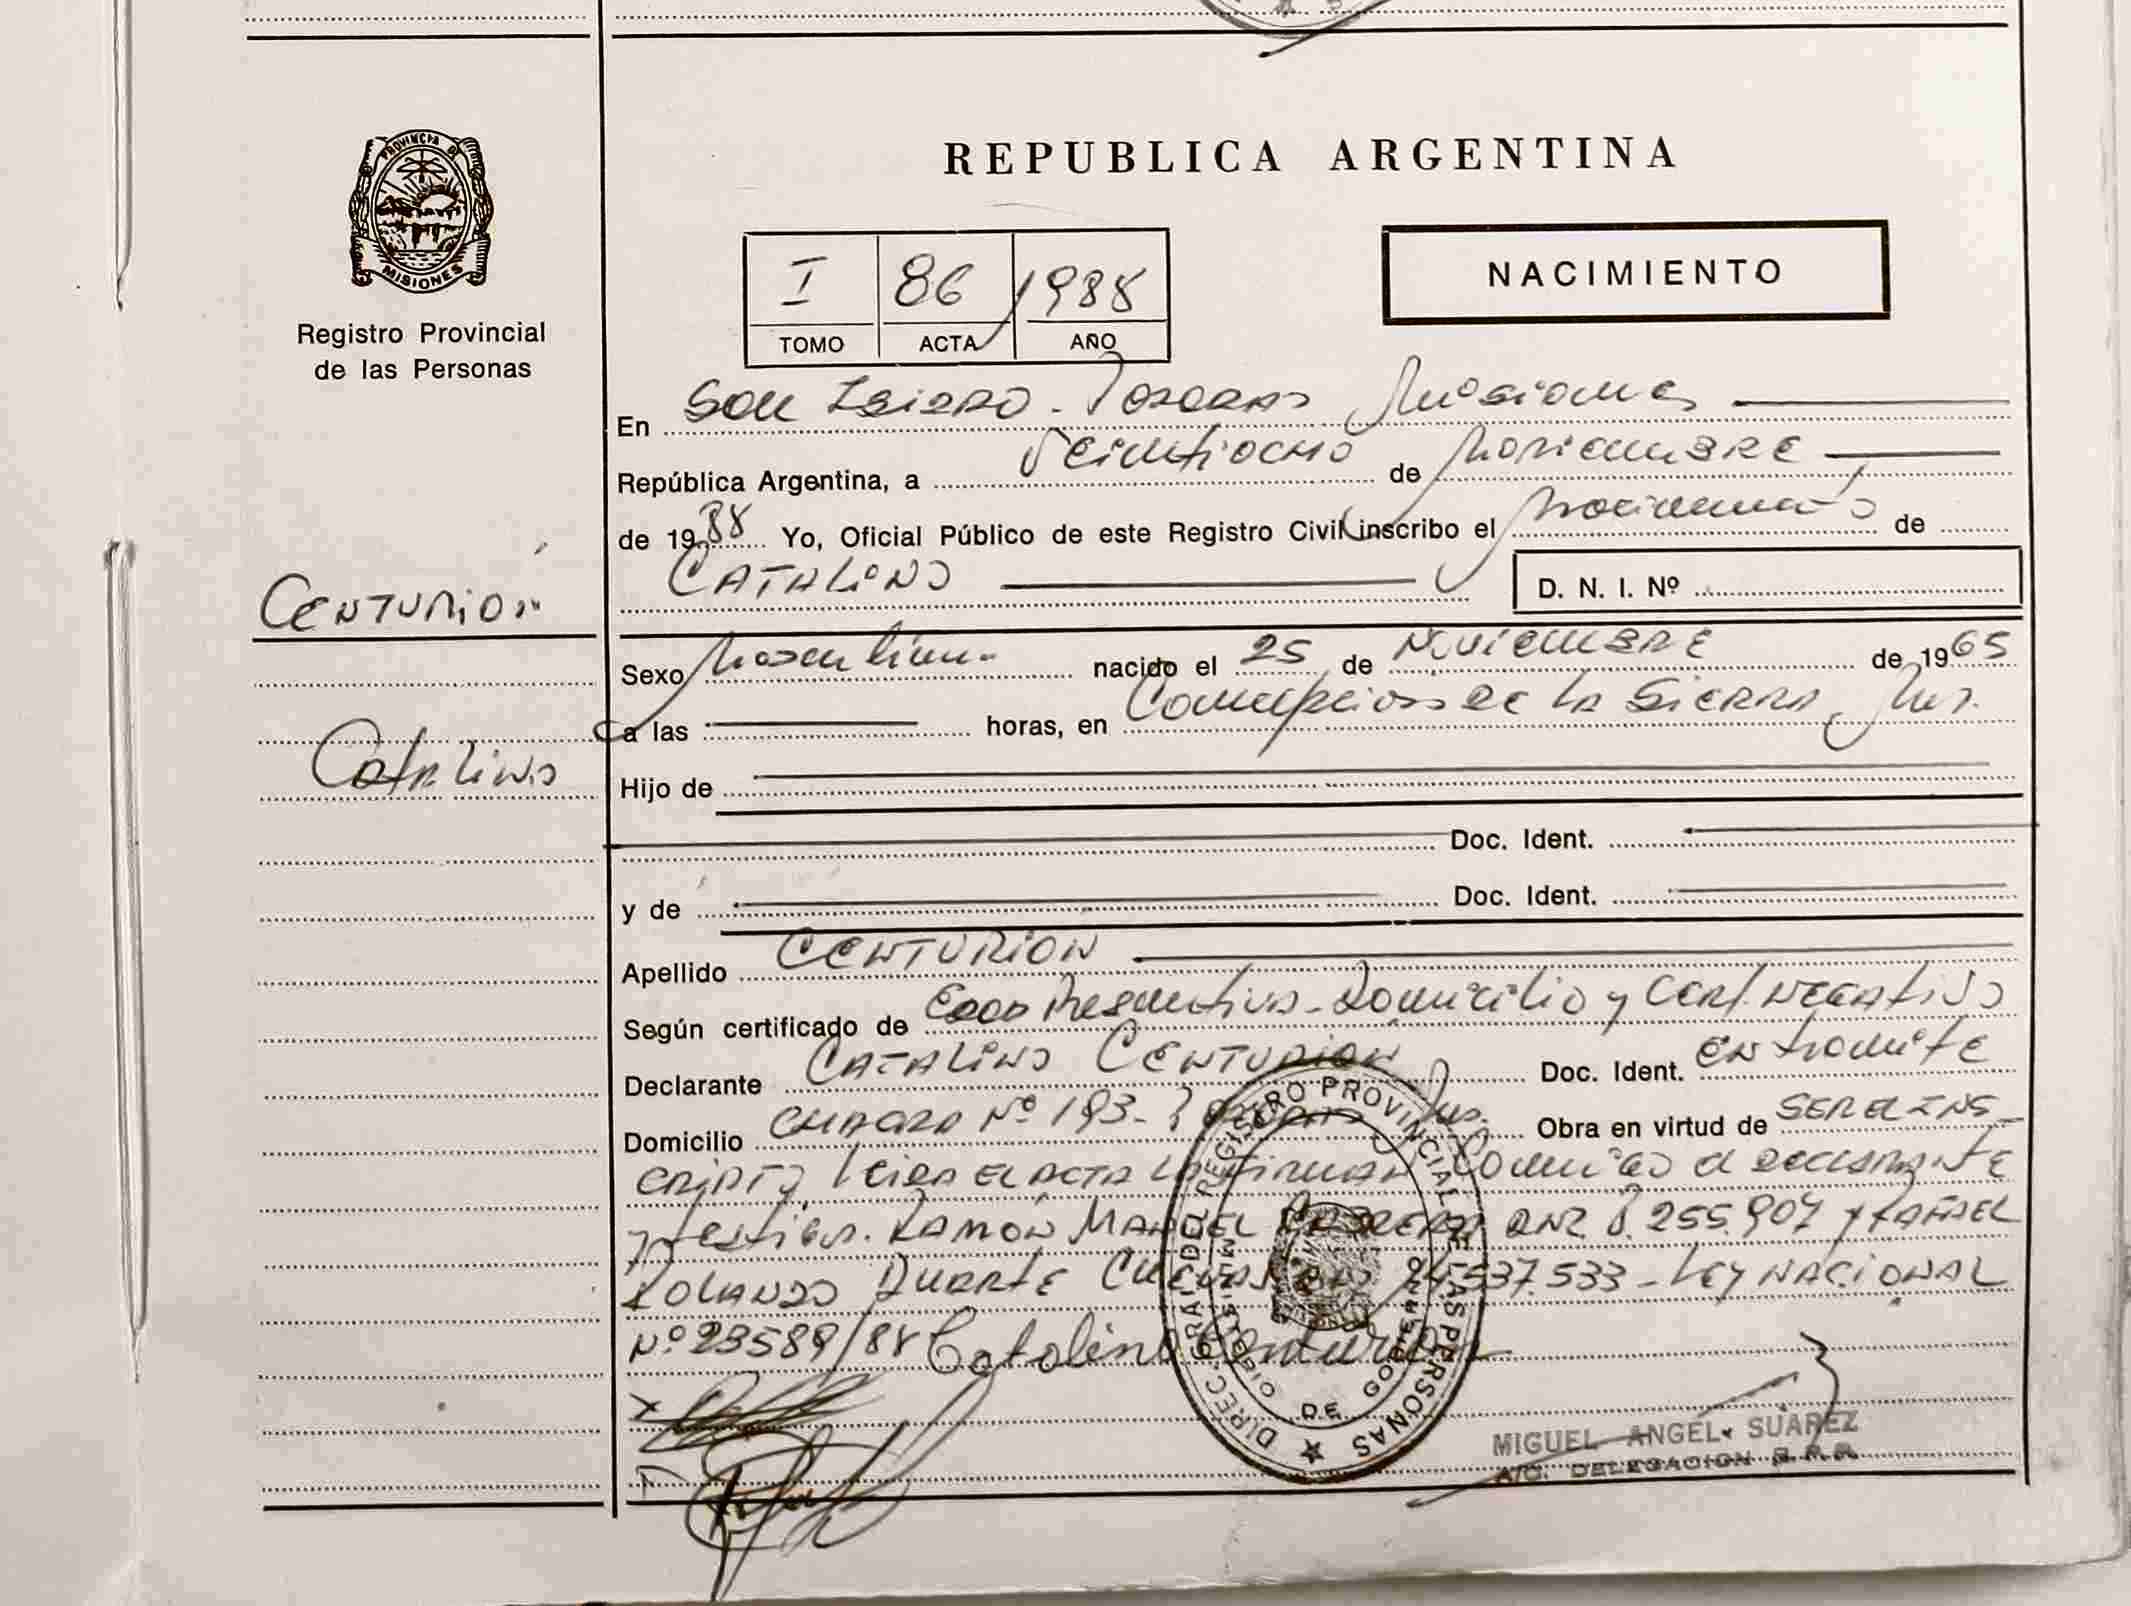 REPUBLICA ARGENTINA
PROVINCIA DE MISIONES
Registro Provincial
de las Personas
I 86 1988
TOMO ACTA AÑO
NACIMIENTO
En San Isidro - Posadas Misiones
República Argentina, a Veintiocho de Noviembre
de 1988 Yo, Oficial Público de este Registro Civil inscribo el Nacimiento de
CATALINO
D. N. I. Nº
CENTURIÓN
Catalino
Sexo Masculino nacido el 25 de NOVIEMBRE de 1965
a las horas, en Concepcion de la Sierra, Mns.
Hijo de
Doc. Ident.
y de Doc. Ident.
Apellido CENTURION
Según certificado de Edad Presuntiva - Domicilio y Cert. NEGATIVO
Declarante CATALINO CENTURION Doc. Ident. En tramite
Domicilio CHACRA Nº 193 - Posadas Mns. Obra en virtud de SER EL INS
CRIPTO, Leida EL ACTA LA Firman Conmigo el declarante
y testigos. RAMÓN MANUEL CABRERA DNI 8.255.907 y RAFAEL
ROLANDO DUARTE CUEVAS 24.537.533 - LEY NACIONAL
Nº 23589/88 Catalino Centurion
DIREC. GRAL. DEL REGISTRO PROVINCIAL DE LAS PERSONAS
MINISTERIO DE GOBIERNO
MIGUEL ANGEL SUAREZ
A/C. DELEGACION R.P.P.